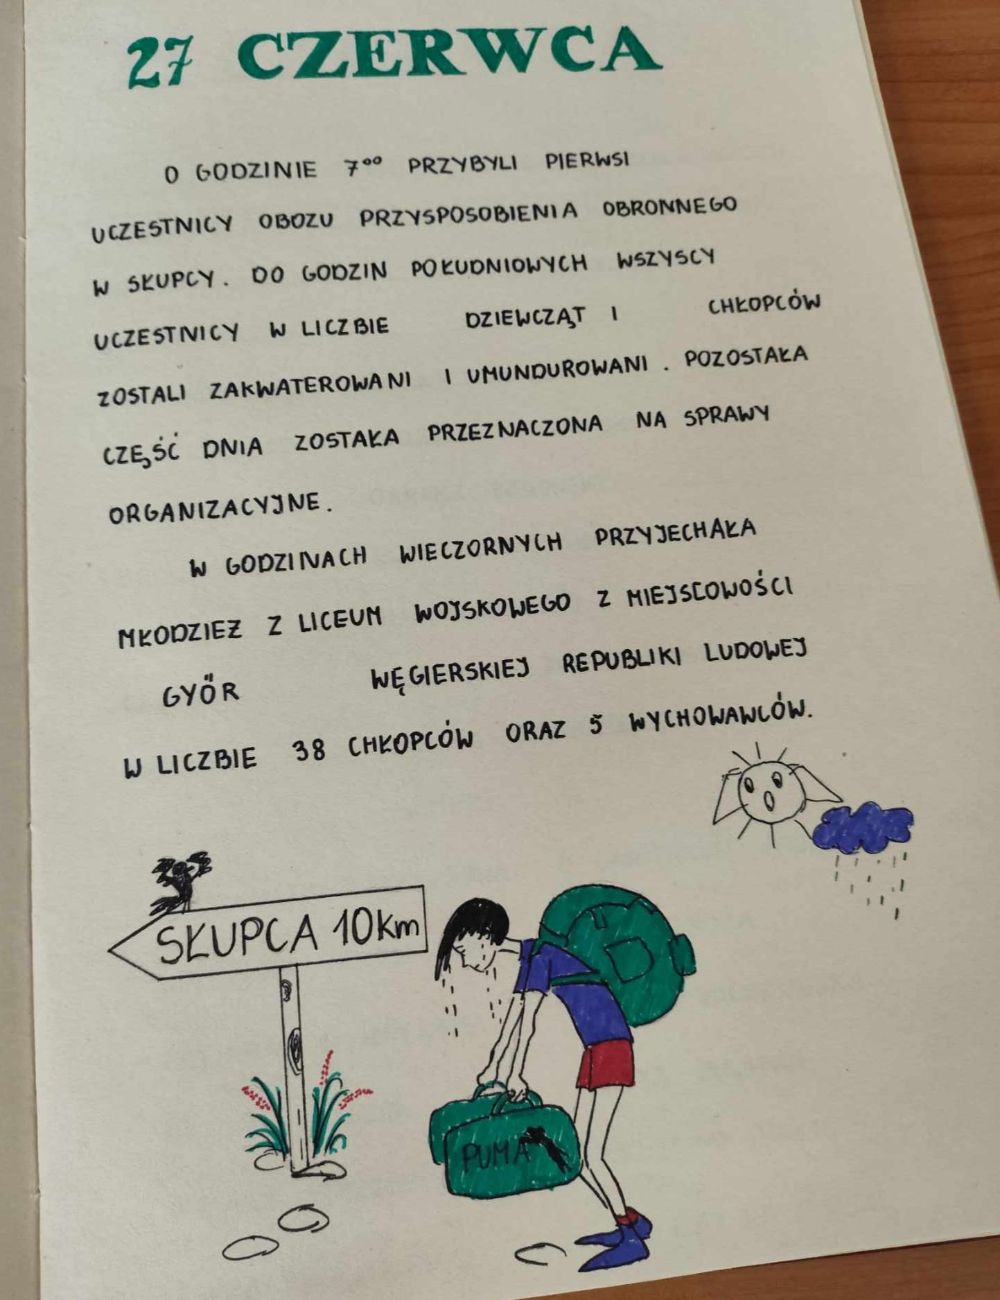 27 CZERWCA
O GODZINIE 7⁰⁰ PRZYBYLI PIERWSI
UCZESTNICY OBOZU PRZYSPOSOBIENIA OBRONNEGO
W SŁUPCY. DO GODZIN POŁUDNIOWYCH WSZYSCY
UCZESTNICY W LICZBIE DZIEWCZĄT I CHŁOPCÓW
ZOSTALI ZAKWATEROWANI I UMUNDUROWANI. POZOSTAŁA
CZĘŚĆ DNIA ZOSTAŁA PRZEZNACZONA NA SPRAWY
ORGANIZACYJNE.
W GODZINACH WIECZORNYCH PRZYJECHAŁA
MŁODZIEŻ Z LICEUM WOJSKOWEGO Z MIEJSCOWOŚCI
GYŐR WĘGIERSKIEJ REPUBLIKI LUDOWEJ
W LICZBIE 38 CHŁOPCÓW ORAZ 5 WYCHOWAWCÓW.
SŁUPCA 10 Km
PUMA